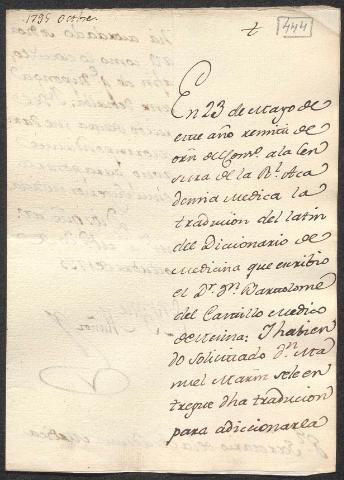 1735 Octre.
444
En 23 de Mayo de
este año remiti de
orn del Consº. a la Cen
sura de la Rl. Aca
demia Medica la
traducion del latin
del Diccionario de
Medicina que escribio
el Dr. Dn. Bartolome
del Castillo Medico
de Reina: Y habien
do solicitado Dn. Ma
nuel Marin se le en
tregue dha traducion
para adiccionarla